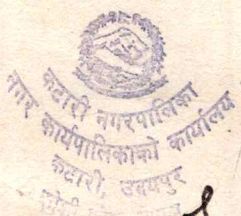 कटारी नगरपालिका
नगर कार्यपालिकाको कार्यालय
कटारी, उदयपुर